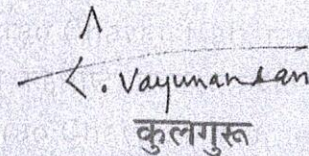 E. Vayunandan
कुलगुरू